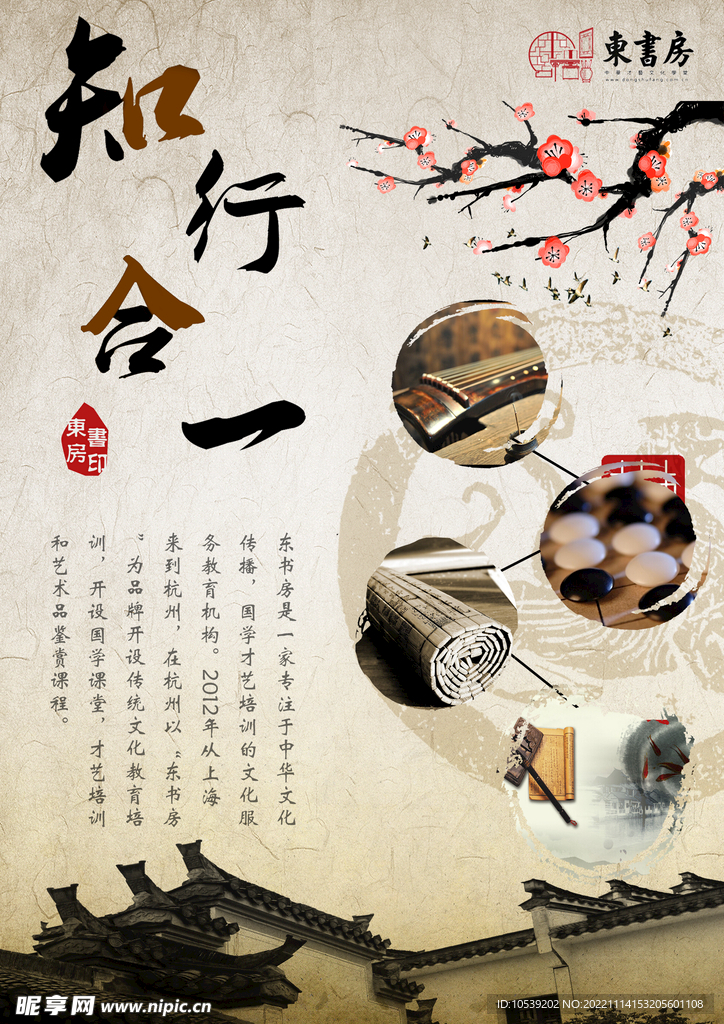 知行合一
東書房
中華才藝文化學堂
www.dongshufang.com.cn
東房
書印
东书房是一家专注于中华文化
传播，国学才艺培训的文化服
务教育机构。2012年从上海
来到杭州，在杭州以“东书房
”为品牌开设传统文化教育培
训，开设国学课堂，才艺培训
和艺术品鉴赏课程。
昵享网 www.nipic.cn
ID:10539202 NO:20221114153205601108